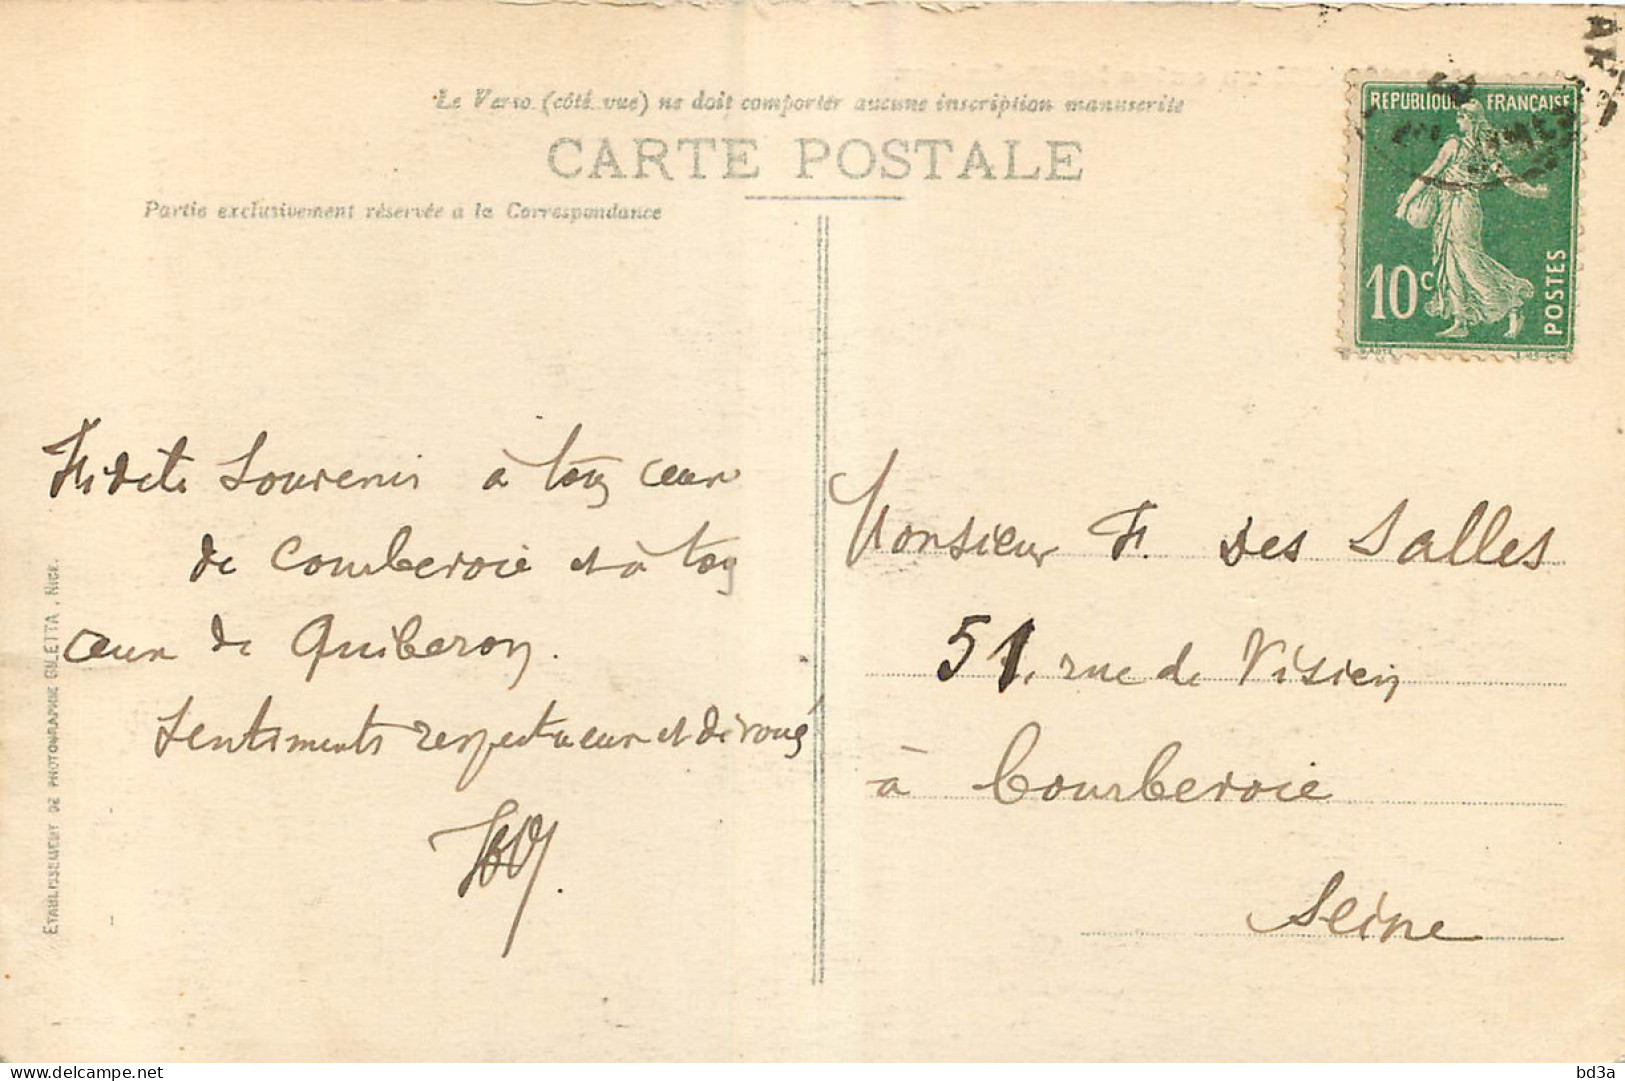 Le Verso (côté vue) ne doit comporter aucune inscription manuscrite
CARTE POSTALE
Partie exclusivement réservée à la Correspondance
REPUBLIQUE FRANÇAISE
10c
POSTES
Fidele Souvenir à tous ceux
de Courbevoie et à tous
ceux de Quiberon.
Sentiments respectueux et dévoué
Monsieur F. des Salles
51, rue de Visien
à Courbevoie
Seine
ETABLISSEMENT DE PHOTOGRAPHIE GILETTA, NICE.
delcampe.net
bd3a